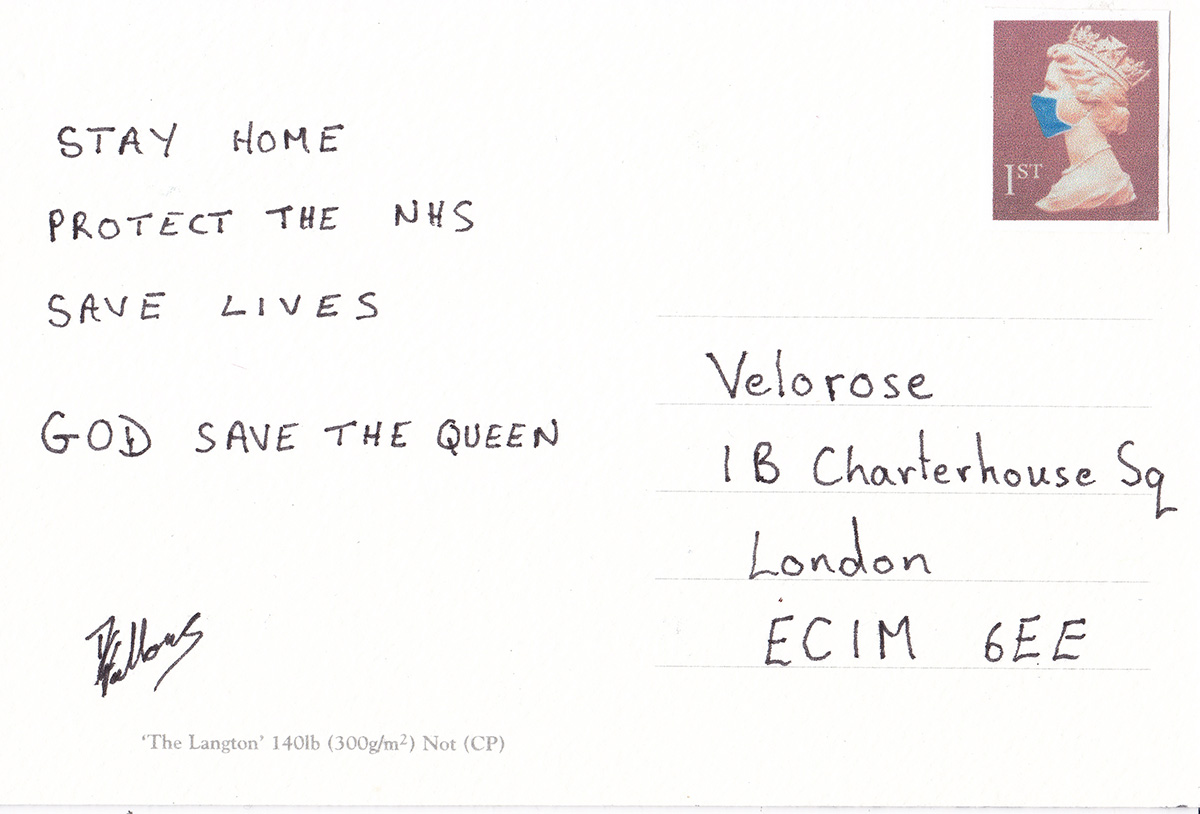 STAY HOME
PROTECT THE NHS
SAVE LIVES
GOD SAVE THE QUEEN
'The Langton' 140lb (300g/m²) Not (CP)
1ST
Velorose
1B Charterhouse Sq
London
EC1M 6EE